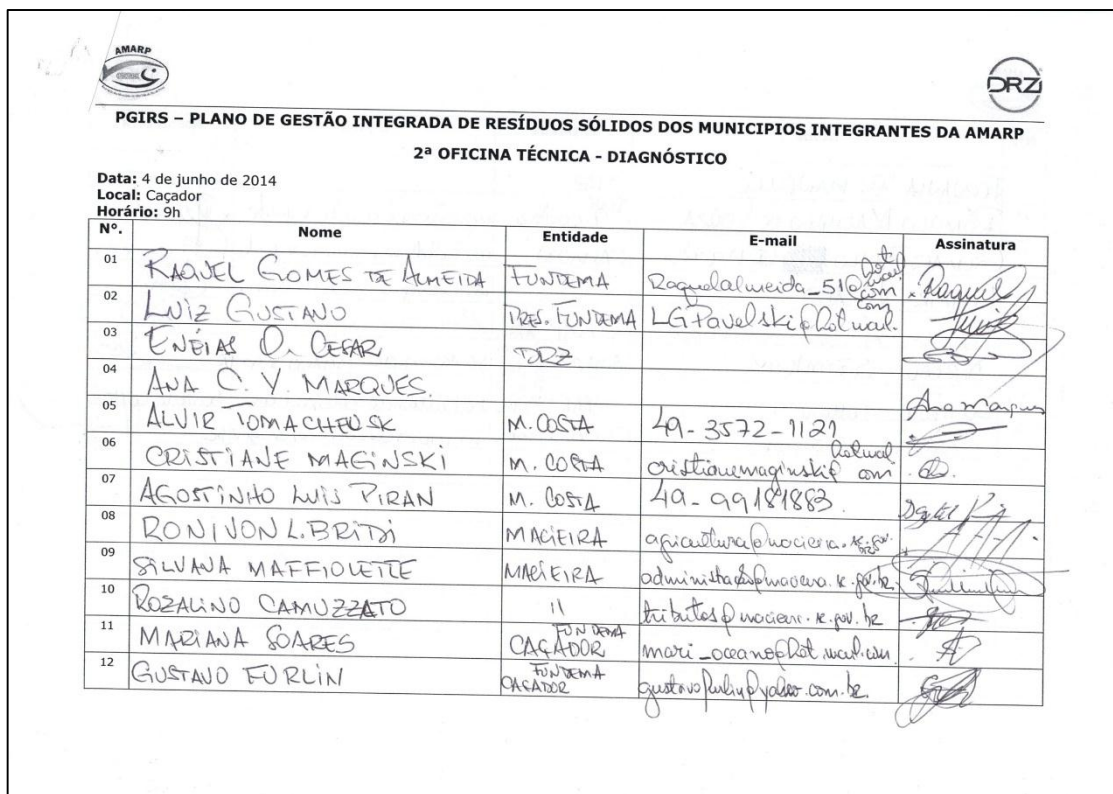 AMARP
DRZ
PGIRS – PLANO DE GESTÃO INTEGRADA DE RESÍDUOS SÓLIDOS DOS MUNICIPIOS INTEGRANTES DA AMARP
2ª OFICINA TÉCNICA - DIAGNÓSTICO
Data: 4 de junho de 2014
Local: Caçador
Horário: 9h
Nº. Nome Entidade E-mail Assinatura
01 RAQUEL GOMES DE ALMEIDA FUNDEMA Raquelalmeida_51@hotmail.com Raquel
02 LUIZ GUSTAVO PRES. FUNDEMA LGPavelski@hotmail.com Luiz
03 ENÉIAS O. CESAR DRZ
04 ANA C. Y. MARQUES. Ana Marques
05 ALVIR TOMACHEUSK M. COSTA 49-3572-1121
06 CRISTIANE MAGINSKI M. COSTA cristianemaginski@hotmail.com
07 AGOSTINHO LUIS PIRAN M. COSTA 49-99181883.
08 RONIVON L. BRITDI MACIEIRA agricultura@macieira.sc.gov.br
09 SILVANA MAFFIOLETTE MACIEIRA administração@macieira.sc.gov.br
10 ROZALINO CAMUZZATO 11 tributos@macieira.sc.gov.br
11 MARIANA SOARES FUNDEMA CAÇADOR mari_oceano@hotmail.com
12 GUSTAVO FURLIN FUNDEMA CAÇADOR gustavofurlin@yahoo.com.br